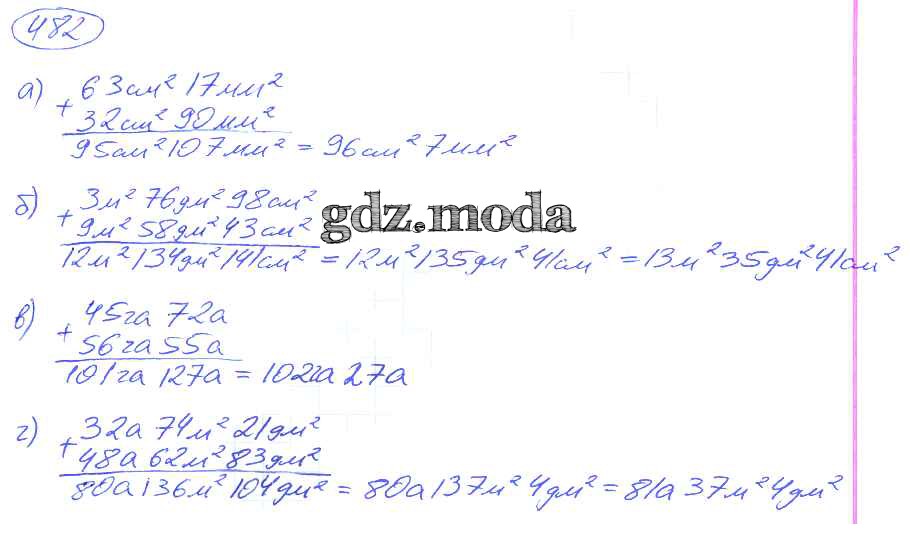 482
а) 63см² 17мм²
+
32см² 90мм²
95см² 107мм² = 96см² 7мм²
б) 3м² 76дм² 98см²
+
9м² 58дм² 43см²
gdz.moda
12м² 134дм² 141см² = 12м² 135дм² 41см² = 13м² 35дм² 41см²
в) 45га 72а
+
56га 55а
101га 127а = 102га 27а
г) 32а 74м² 21дм²
+
48а 62м² 83дм²
80а 136м² 104дм² = 80а 137м² 4дм² = 81а 37м² 4дм²